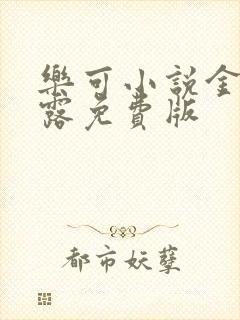 樂可小説金
露免費版
都市妖孽